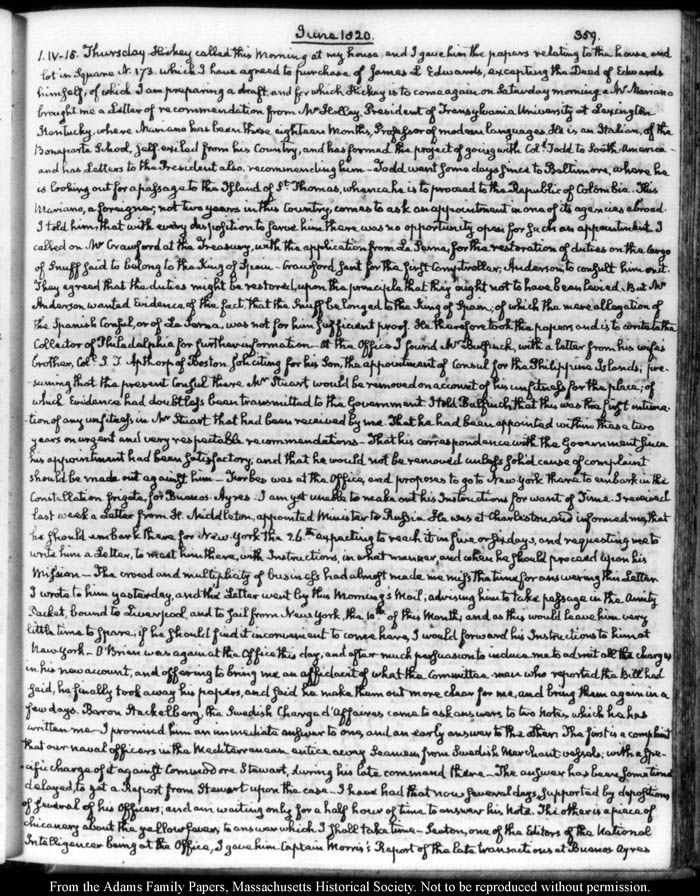 June 1820.
359.
1. IV-15. Thursday Hickey called this Morning at my house, and I gave him the papers relating to the house and
lot in Square N. 173. which I have agreed to purchase of James L Edwards, excepting the Deed of Edwards
himself, of which I am preparing a draft, and for which Hickey is to come again on Saturday morning. Mr Mariano
brought me a Letter of recommendation from Mr Holley, President of Transylvania University at Lexington
Kentucky, where Mariano has been these eighteen Months, Professor of modern languages. He is an Italian, of the
Bonaparte School, self-exiled from his Country, and has formed the project of going with Coll. Todd to South-America—
and has Letters to the President also, recommending him— Todd went some days since to Baltimore, where he
is looking out for a passage to the Island of St. Thomas, whence he is to proceed to the Republic of Colombia. This
Mariano, a foreigner, not two years in this Country, comes to ask an appointment in one of its agencies abroad.
I told him, that with every disposition to serve him there was no opportunity open for such an appointment. I
called on Mr Crawford at the Treasury, with the application from La Serna, for the restoration of duties on the Cargo
of Snuff said to belong to the King of Spain— Crawford sent for the first Comptroller, Anderson, to consult him on it.
They agreed that the duties might be restored, upon the principle that they ought not to have been levied. But Mr
Anderson wanted Evidence of the fact, that the Snuff belonged to the King of Spain; of which the mere allegation of
the Spanish Consul, or of La Serna, was not for him sufficient proof. He therefore took the papers and is to write to the
Collector of Philadelphia for further information— At the Office I found Mr Bulfinch, with a letter from his wife's
brother, Coll. S. T. Apthorp of Boston soliciting for his Son the appointment of Consul for the Philippine Islands; pre-
suming that the present Consul there Mr Stuart would be removed on account of his unfitness for the place; of
which Evidence had doubtless been transmitted to the Government. I told Bulfinch that this was the first intima-
-tion of any unfitness in Mr Stuart that had been received by me. That he had been appointed within these two
years on urgent and very respectable recommendations— That his correspondence with the Government since
his appointment had been satisfactory, and that he would not be removed unless solid cause of complaint
should be made out against him— Forbes was at the Office, and proposes to go to New York there to embark in the
Constellation frigate, for Buenos-Ayres. I am yet unable to make out his Instructions for want of Time. I received
last week a Letter from H. Middleton, appointed Minister to Russia. He was at Charleston, and informed me, that
he should embark there for New York the 26th. expecting to reach it in five or six days, and requesting me to
write him a Letter, to meet him there, with Instructions, in what manner, and when he should proceed upon his
Mission— The crowd and multiplicity of business had almost made me miss the time for answering this Letter
I wrote to him yesterday, and the Letter went by this Morning's Mail; advising him to take passage in the Amity
Packet, bound to Liverpool, and to sail from New York, the 10th. of this Month; and as this would leave him very
little time to spare, if he should find it inconvenient to come here, I would forward his Instructions to him at
New York— O'Brien was again at the Office this day, and after much persuasion to induce me to admit all the charges
in his new account, and offering to bring me an affidavit of what the Committee-men who reported the Bill had
said, he finally took away his papers, and said he make them out more clear for me, and bring them again in a
few days. Baron Stackelberg, the Swedish Chargé d'affaires came to ask answers to two Notes which he has
written me— I promised him an immediate answer to one, and an early answer to the other. The first is a complaint
that our naval officers in the Mediterranean entice away Seamen from Swedish Merchant vessels; with a spe-
-cific charge of it against Commodore Stewart, during his late command there— The answer has been some time
delayed, to get a Report from Stewart upon the case— I have had that now several days, supported by depositions
of several of his Officers; and am waiting only for a half hour of time to answer his Note. The other is a piece of
chicanery about the yellow fever, to answer which I shall take time— Seaton, one of the Editors of the National
Intelligencer being at the Office, I gave him Captain Morris's Report of the late transactions at Buenos Ayres
From the Adams Family Papers, Massachusetts Historical Society. Not to be reproduced without permission.